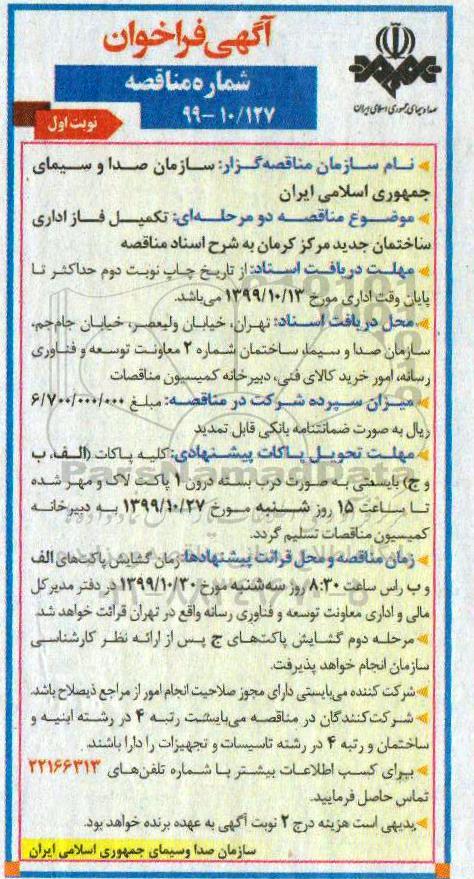 آگهی فراخوان
شماره مناقصه
۹۹-۱۰/۱۲۷
صدا و سیمای جمهوری اسلامی ایران
نوبت اول
نام سازمان مناقصه‌گزار: سازمان صدا و سیمای
جمهوری اسلامی ایران
موضوع مناقصه دو مرحله‌ای: تکمیل فاز اداری
ساختمان جدید مرکز کرمان به شرح اسناد مناقصه
مهلت دریافت اسناد: از تاریخ چاپ نوبت دوم حداکثر تا
پایان وقت اداری مورخ ۱۳۹۹/۱۰/۱۳ می‌باشد.
محل دریافت اسناد: تهران، خیابان ولیعصر، خیابان جام‌جم،
سازمان صدا و سیما، ساختمان شماره ۲ معاونت توسعه و فناوری
رسانه، امور خرید کالای فنی، دبیرخانه کمیسیون مناقصات
میزان سپرده شرکت در مناقصه: مبلغ ۶/۷۰۰/۰۰۰/۰۰۰
ریال به صورت ضمانتنامه بانکی قابل تمدید
مهلت تحویل پاکات پیشنهادی: کلیه پاکات (الف، ب
و ج) بایستی به صورت درب بسته درون ۱ پاکت لاک و مهر شده
تا ساعت ۱۵ روز شنبه مورخ ۱۳۹۹/۱۰/۲۷ به دبیرخانه
کمیسیون مناقصات تسلیم گردد.
زمان مناقصه و محل قرائت پیشنهادها: زمان گشایش پاکت‌های الف
و ب راس ساعت ۸:۳۰ روز سه‌شنبه مورخ ۱۳۹۹/۱۰/۳۰ در دفتر مدیر کل
مالی و اداری معاونت توسعه و فناوری رسانه واقع در تهران قرائت خواهد شد.
مرحله دوم گشایش پاکت‌های ج پس از ارائه نظر کارشناسی
سازمان انجام خواهد پذیرفت.
شرکت کننده می‌بایستی دارای مجوز صلاحیت انجام امور از مراجع ذیصلاح باشد.
شرکت‌کنندگان در مناقصه می‌بایست رتبه ۴ در رشته ابنیه و
ساختمان و رتبه ۴ در رشته تاسیسات و تجهیزات را دارا باشند.
برای کسب اطلاعات بیشتر با شماره تلفن‌های ۲۲۱۶۶۳۱۳
تماس حاصل فرمایید.
بدیهی است هزینه درج ۲ نوبت آگهی به عهده برنده خواهد بود.
سازمان صدا وسیمای جمهوری اسلامی ایران